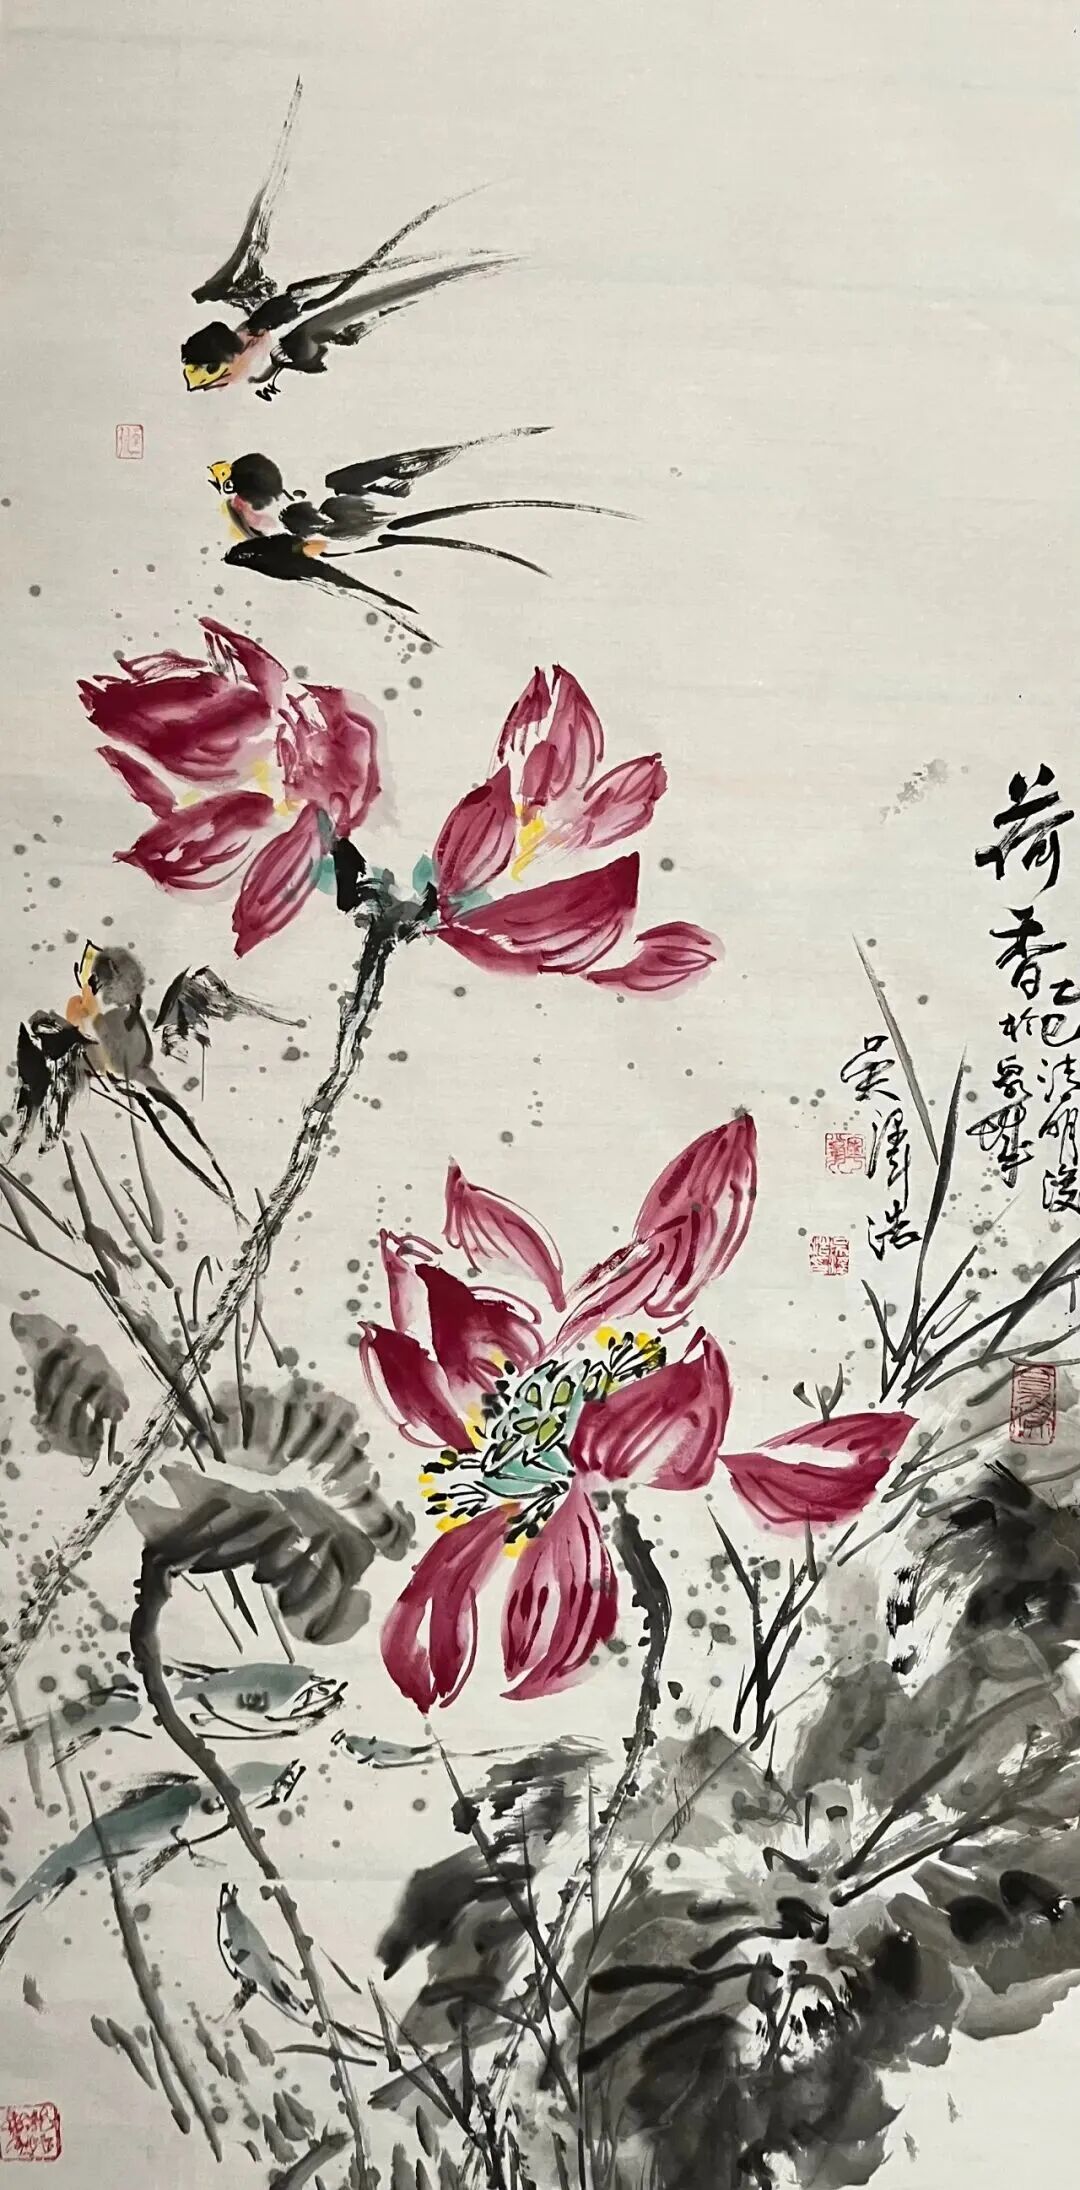 荷香
乙巳清明後
於泉城
吴泽浩